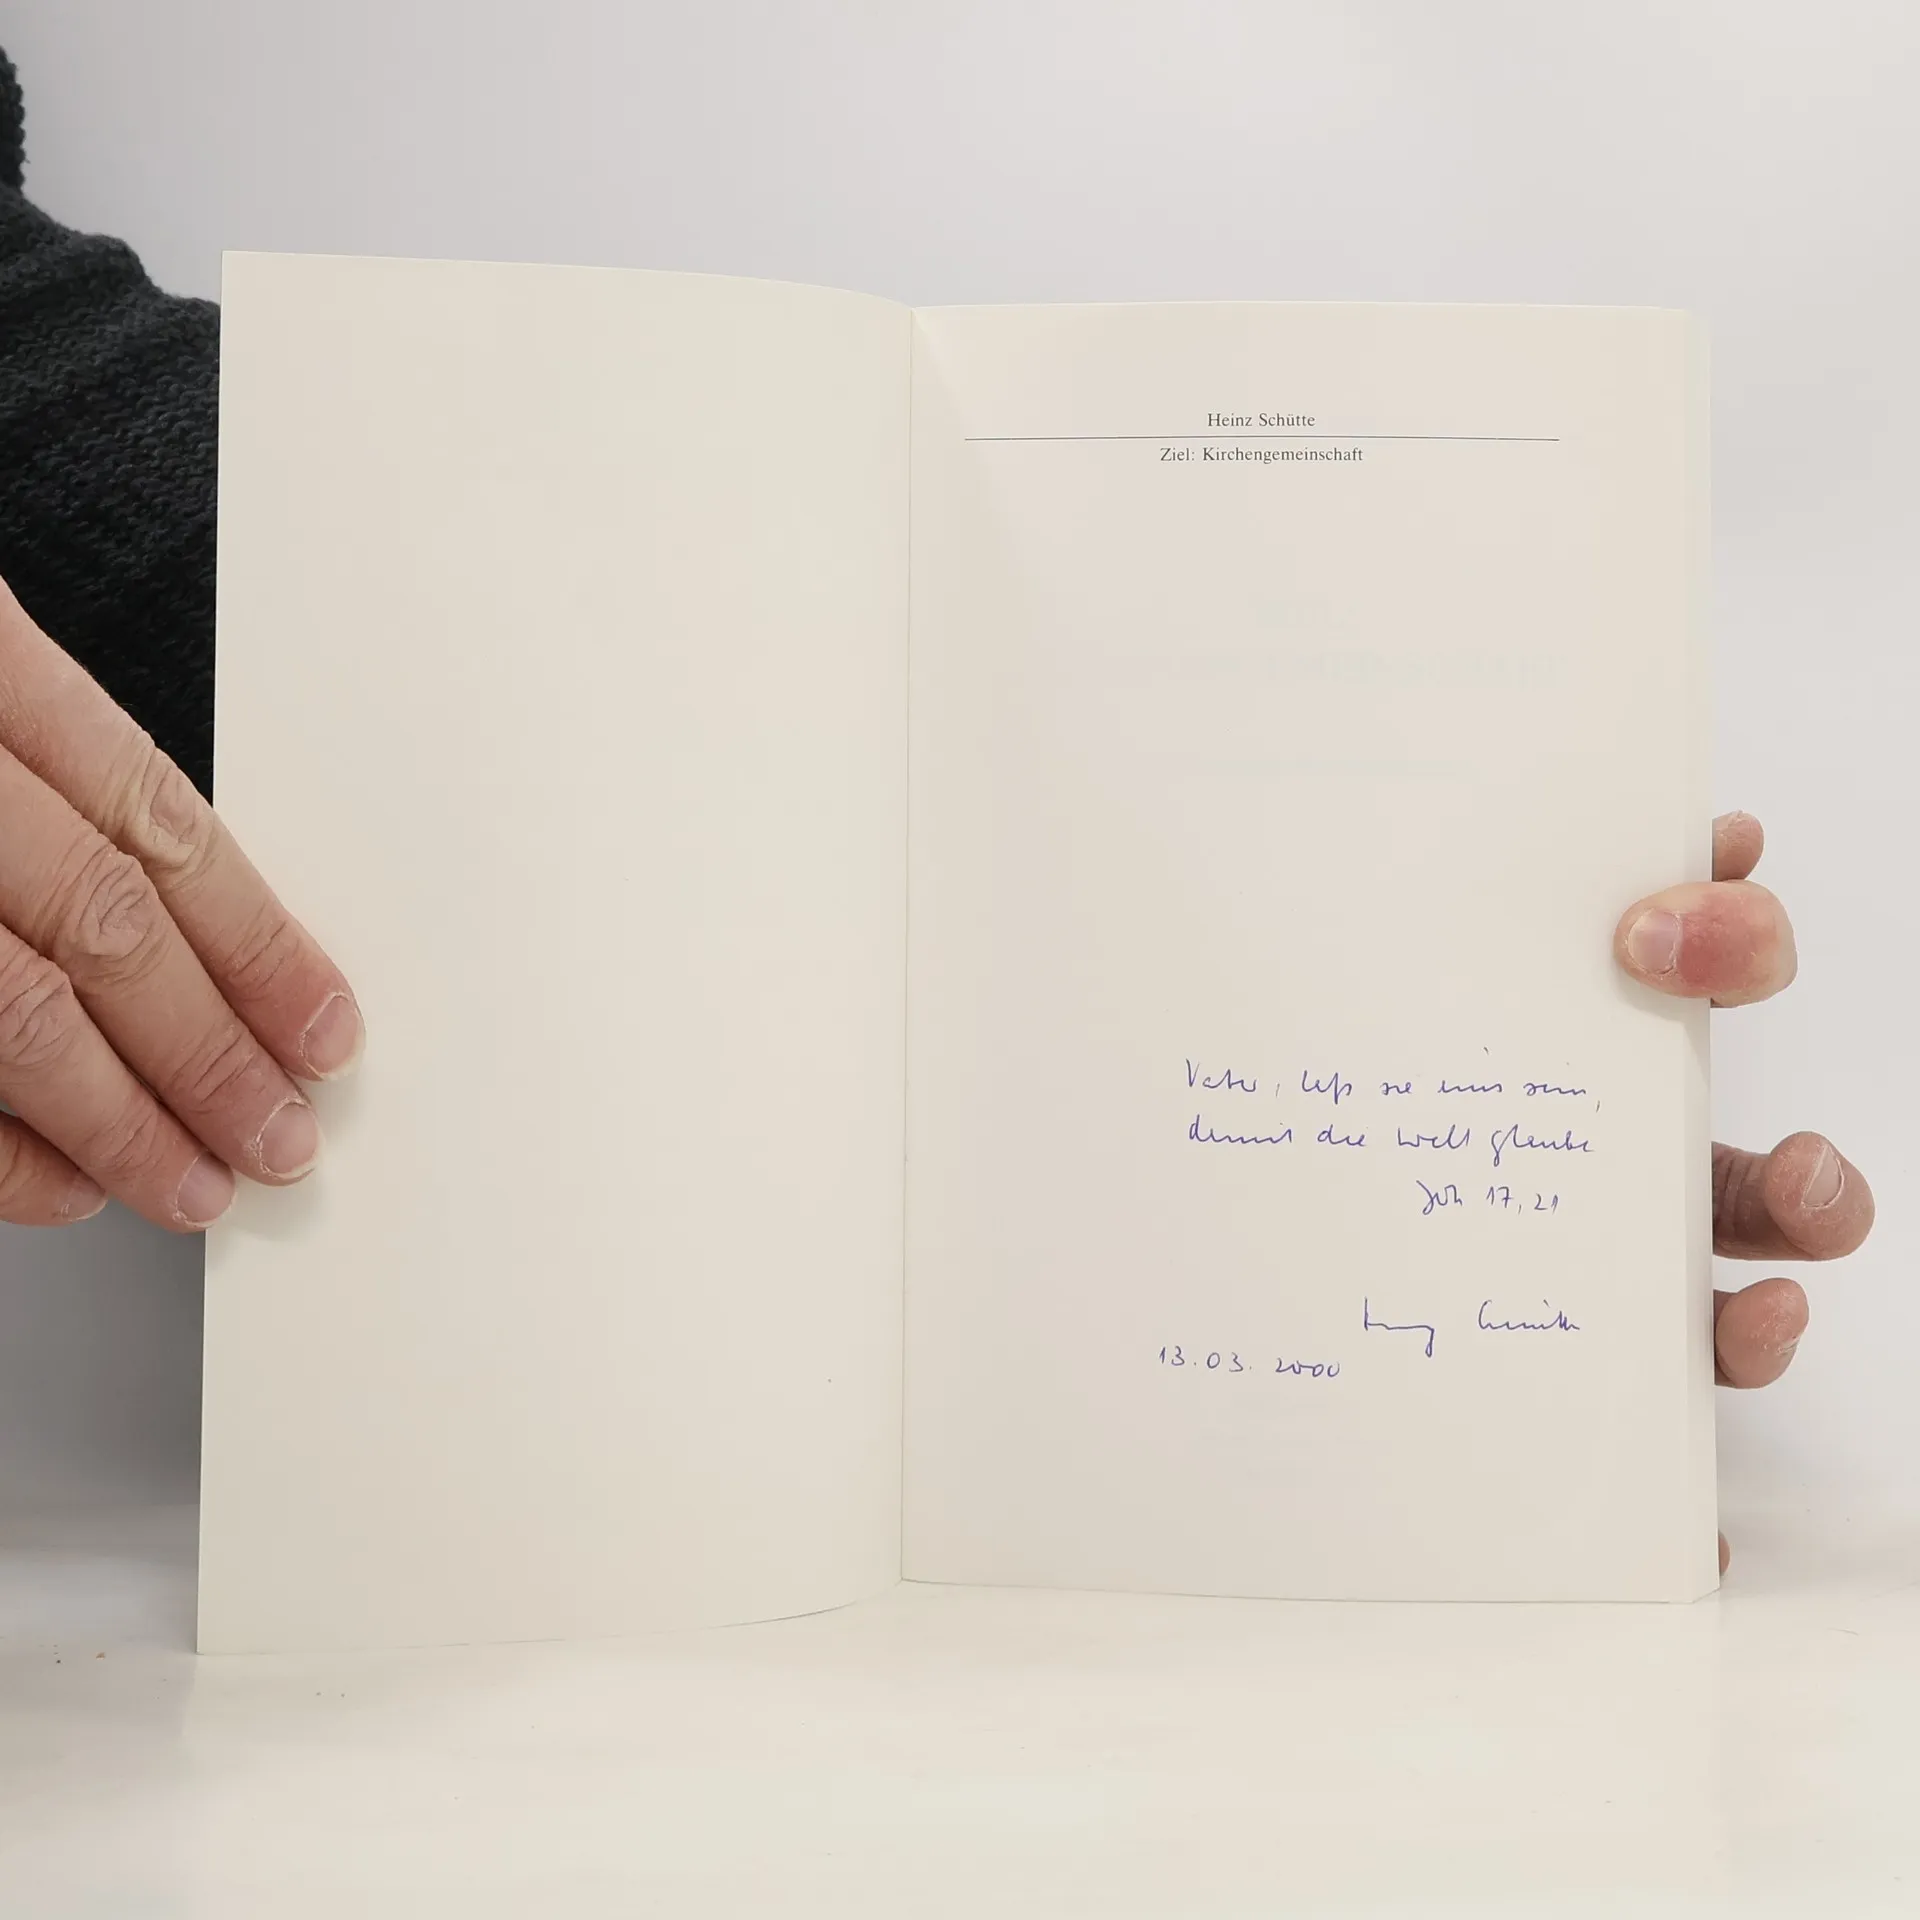 Heinz Schütte
Ziel: Kirchengemeinschaft
Vater, laß sie eins sein,
damit die Welt glaube
Joh 17,21
Heinz Schütte
13.03.2000